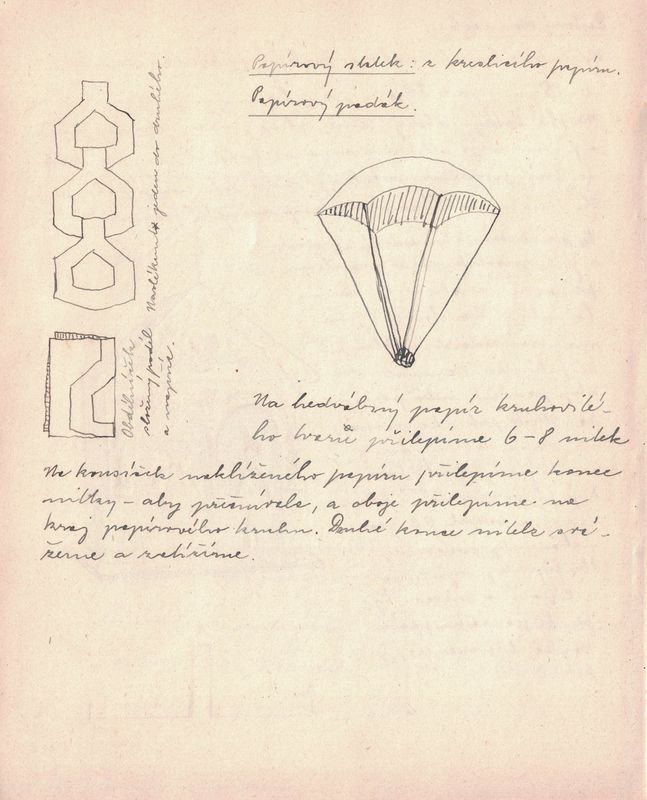 Papírový statek: z kreslicího papíru.
Papírový padák.
Navléknout jeden do druhého.
Obdélníček
složený podél
a napříč.
Na hedvábný papír kruhovité-
ho tvaru přilepíme 6-8 nitek
Na kousíček naklíženého papíru přilepíme konec
nitky – aby přečnívala, a oboje přilepíme na
kraj papírového kruhu. Druhé konce nitek svá-
žeme a zatížíme.